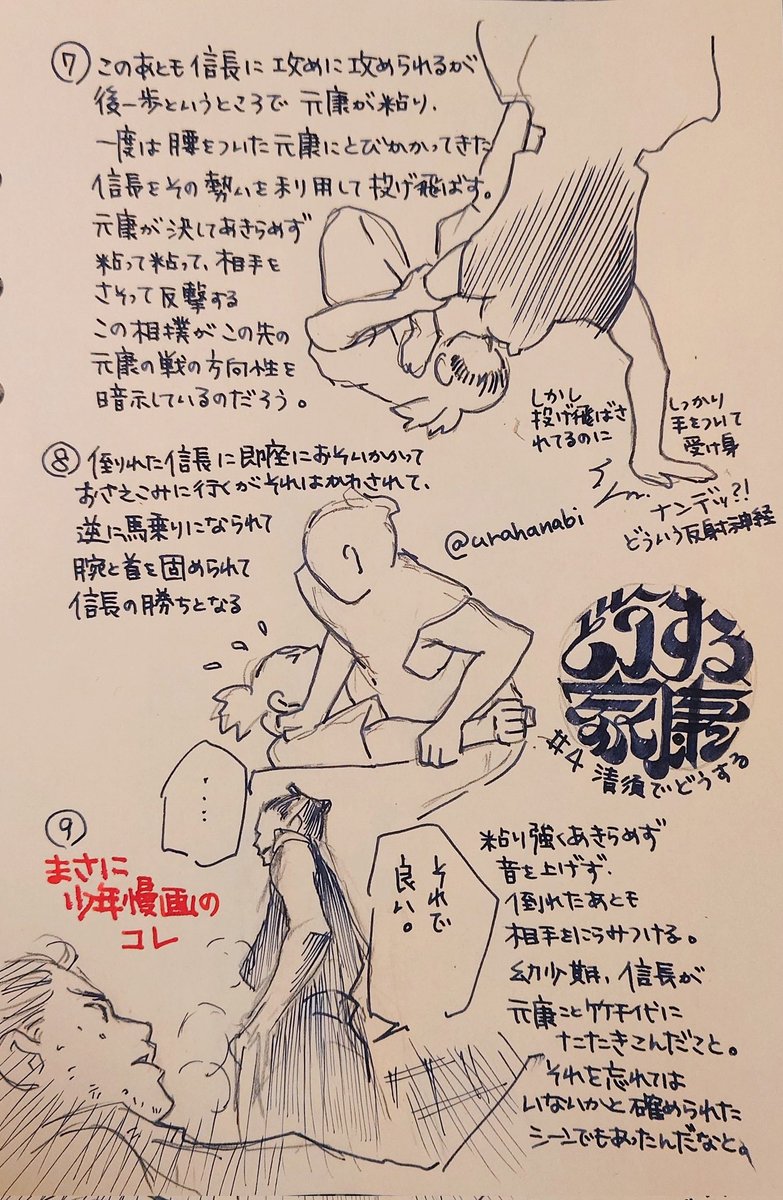 ⑦ このあとも信長に攻めに攻められるが
後一歩というところで元康が粘り、
一度は腰をついた元康にとびかかってきた
信長をその勢いを利用して投げ飛ばす。
元康が決してあきらめず
粘って粘って、相手を
さそって反撃する
この相撲がこの先の
元康の戦の方向性を
暗示しているのだろう。
しかし
投げ飛ばさ
れてるのに
しっかり
手をついて
受け身
ナンデッ?!
どういう反射神経
⑧ 倒れた信長に即座におそいかかって
おさえこみに行くがそれはかわされて、
逆に馬乗りになられて
腕と首を固められて
信長の勝ちとなる
@urahanabi
どうする
家康
#4 清須でどうする
⑨
まさに
少年漫画の
コレ
・・・・
それで
良い。
粘り強くあきらめず
音を上げず、
倒れたあとも
相手をにらみつける。
幼少期、信長が
元康こと竹千代に
たたきこんだこと。
それを忘れては
いないかと確められた
シーンでもあったんだなと。